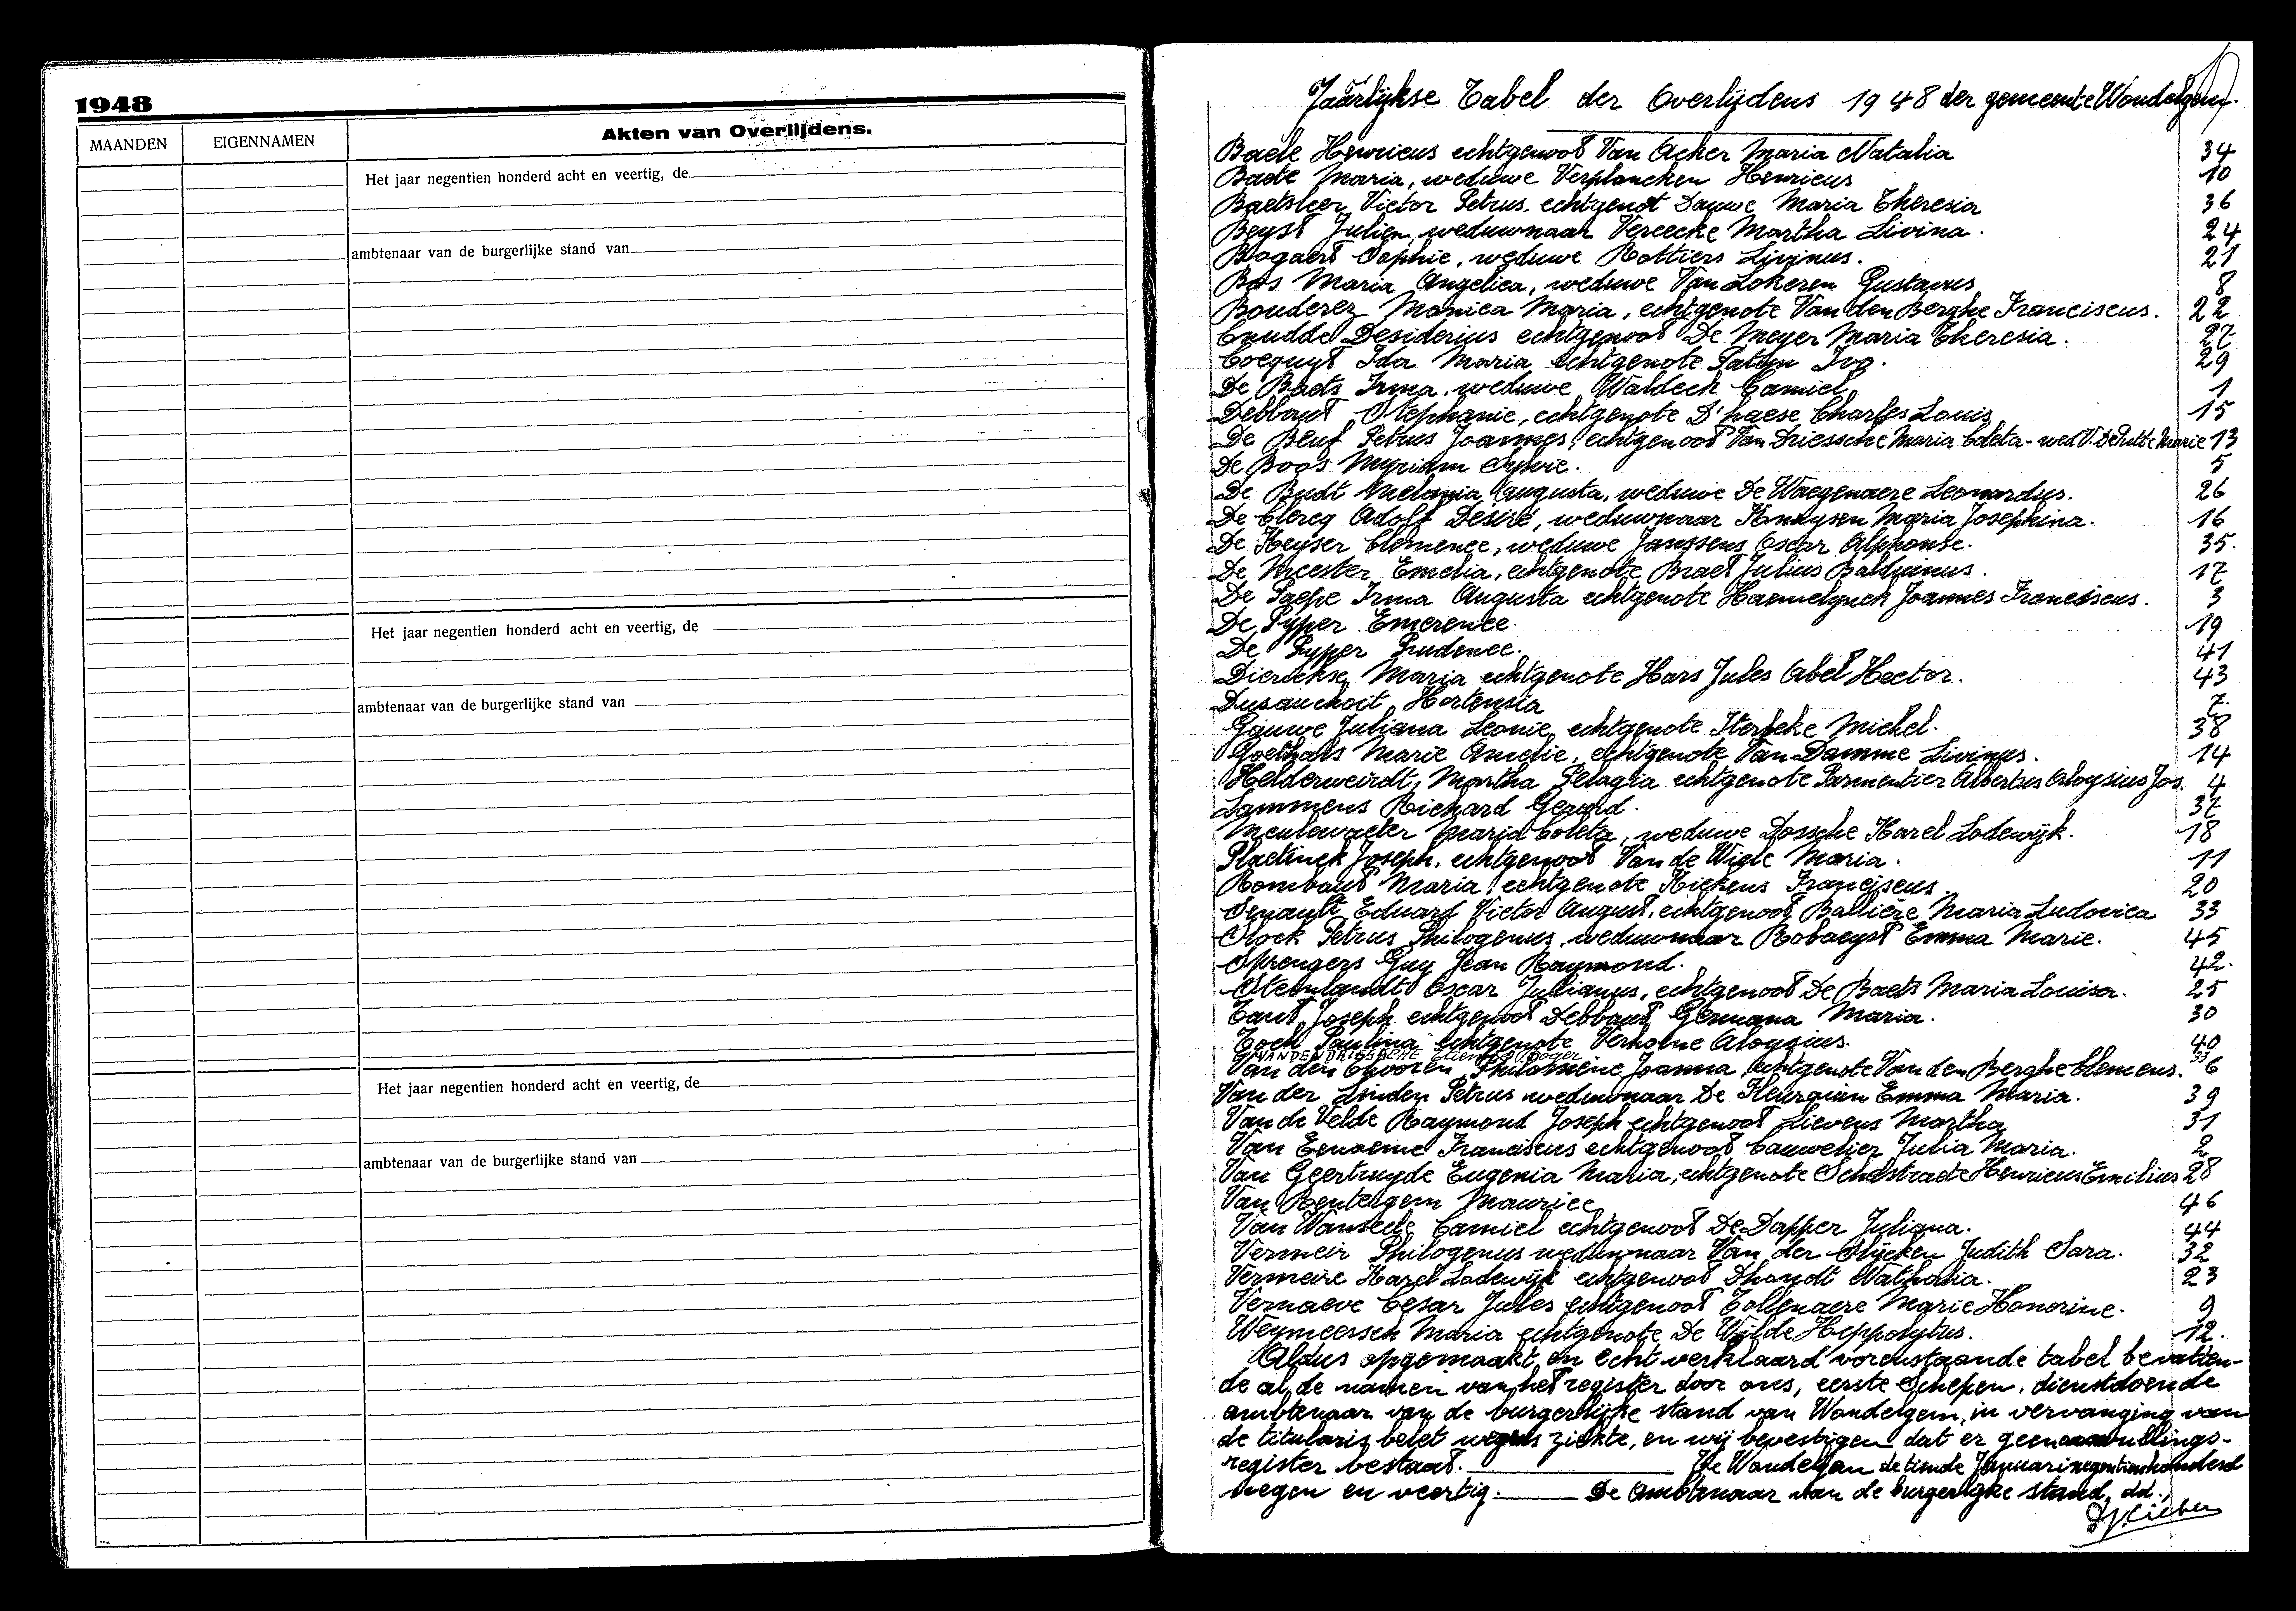 1948
MAANDEN
EIGENNAMEN
Akten van Overlijdens.
Het jaar negentien honderd acht en veertig, de
ambtenaar van de burgerlijke stand van
Het jaar negentien honderd acht en veertig, de
ambtenaar van de burgerlijke stand van
Het jaar negentien honderd acht en veertig, de
ambtenaar van de burgerlijke stand van
Jaarlijkse Tabel der Overlijdens 1948 der gemeente Wondelgem.
Baele Henricus echtgenoot Van Acker Maria Natalia 34
Baete Maria, weduwe Verplancken Henricus 10
Baetsleer Victor Petrus, echtgenot Dauwe Maria Theresia 36
Beyst Julien, weduwnaar Vereecke Martha Livina. 24
Bogaert Sophie, weduwe Rottiers Livinus. 21
Bos Maria Angelica, weduwe Van Lokeren Gustavus 8
Bouderez Monica Maria, echtgenote Van den Berghe Franciscus. 22
Cnudde Desiderius echtgenoot De Meyer Maria Theresia. 27
Cocquyt Ida Maria echtgenote Patyn Ivo. 29
De Baets Irma, weduwe Waldeck Camiel 1
Debbaut Stephanie, echtgenote D'haese Charles Louis 15
De Beuf Petrus Joannes, echtgenoot Van Driessche Maria Coleta - wed V. De Putte Marie 13
De Boos Myriam Sylvie. 5
De Budt Melania Augusta, weduwe De Waegenaere Leonardus. 26
De Clercq Adolf Desiré, weduwnaar Knuysen Maria Josephina. 16
De Keyser Clemence, weduwe Janssens Oscar Alphonse. 35.
De Meester Emelia, echtgenote Braet Julius Balduinus. 17
De Paepe Irma Augusta echtgenote Haemelynck Joannes Franciscus. 3
De Pyper Emerence. 19
De Pyper Prudence. 41
Dierickse Maria echtgenote Hars Jules Abel Hector. 43
Dusauchoit Hortensia 7.
Gauwe Juliana Leonie, echtgenote Sterbeke Michel. 38
Goethals Marie Amelie, echtgenote Van Damme Livinus. 14
Helderweirdt, Martha Pelagia echtgenote Parmentier Albertus Aloysius Jos. 4
Lammens Richard Gerard. 37
Meulewaeter Maria Coleta, weduwe Dossche Karel Lodewijk. 18
Plaetinck Joseph, echtgenoot Van de Wiele Maria. 11
Rombaut Maria, echtgenote Kiekens Franciscus. 20
Senault Eduard Victor August, echtgenoot Ballière Maria Ludovica 33
Slock Petrus Philogenus, weduwnaar Robaeyst Emma Marie. 45
Sprengers Guy Jean Raymond. 42.
Steenlandt Oscar Julianus, echtgenoot De Baets Maria Louisa. 25
Tant Joseph echtgenoot Debbaut Germana Maria. 30
Toch Paulina echtgenote Verholne Aloysius. 40
VANDENDRIESSCHE Etienne Roger
Van den Philomène Joanna, echtgenote Van den Berghe Clemens. 6
Van der Linden Petrus weduwnaar De Kleurquin Emma Maria. 39
Van de Velde Raymond Joseph echtgenoot Lievens Martha 31
Van Eenaeme Franciscus echtgenoot Cauwelier Julia Maria. 2
Van Geertruyde Eugenia Maria, echtgenote Schelstraete Henricus Emilius 28
Van Renterghem Maurice 46
Van Wonseele Camiel echtgenoot De Dapper Juliana. 44
Vermeir Philogenus weduwnaar Van der Slijcken Judith Sara. 32
Vermeire Karel Lodewijk echtgenoot Dhondt Nathalia. 23
Vernaeve Cesar Jules echtgenoot Tollenaere Marie Honorine. 9
Weymeersch Maria echtgenote De Wilde Heppolytus. 12.
Aldus opgemaakt en echt verklaard vorenstaande tabel bevatten-
de al de namen van het register door ons, eerste schepen, dienstdoende
ambtenaar van de burgerlijke stand van Wondelgem, in vervanging van
de titularis belet wegens ziekte, en wij bevestigen dat er geen aanvullings-
register bestaat. Te Wondelgem de tiende Januari negentienhonderd
negen en veertig. De Ambtenaar van de burgerlijke stand, dd.,